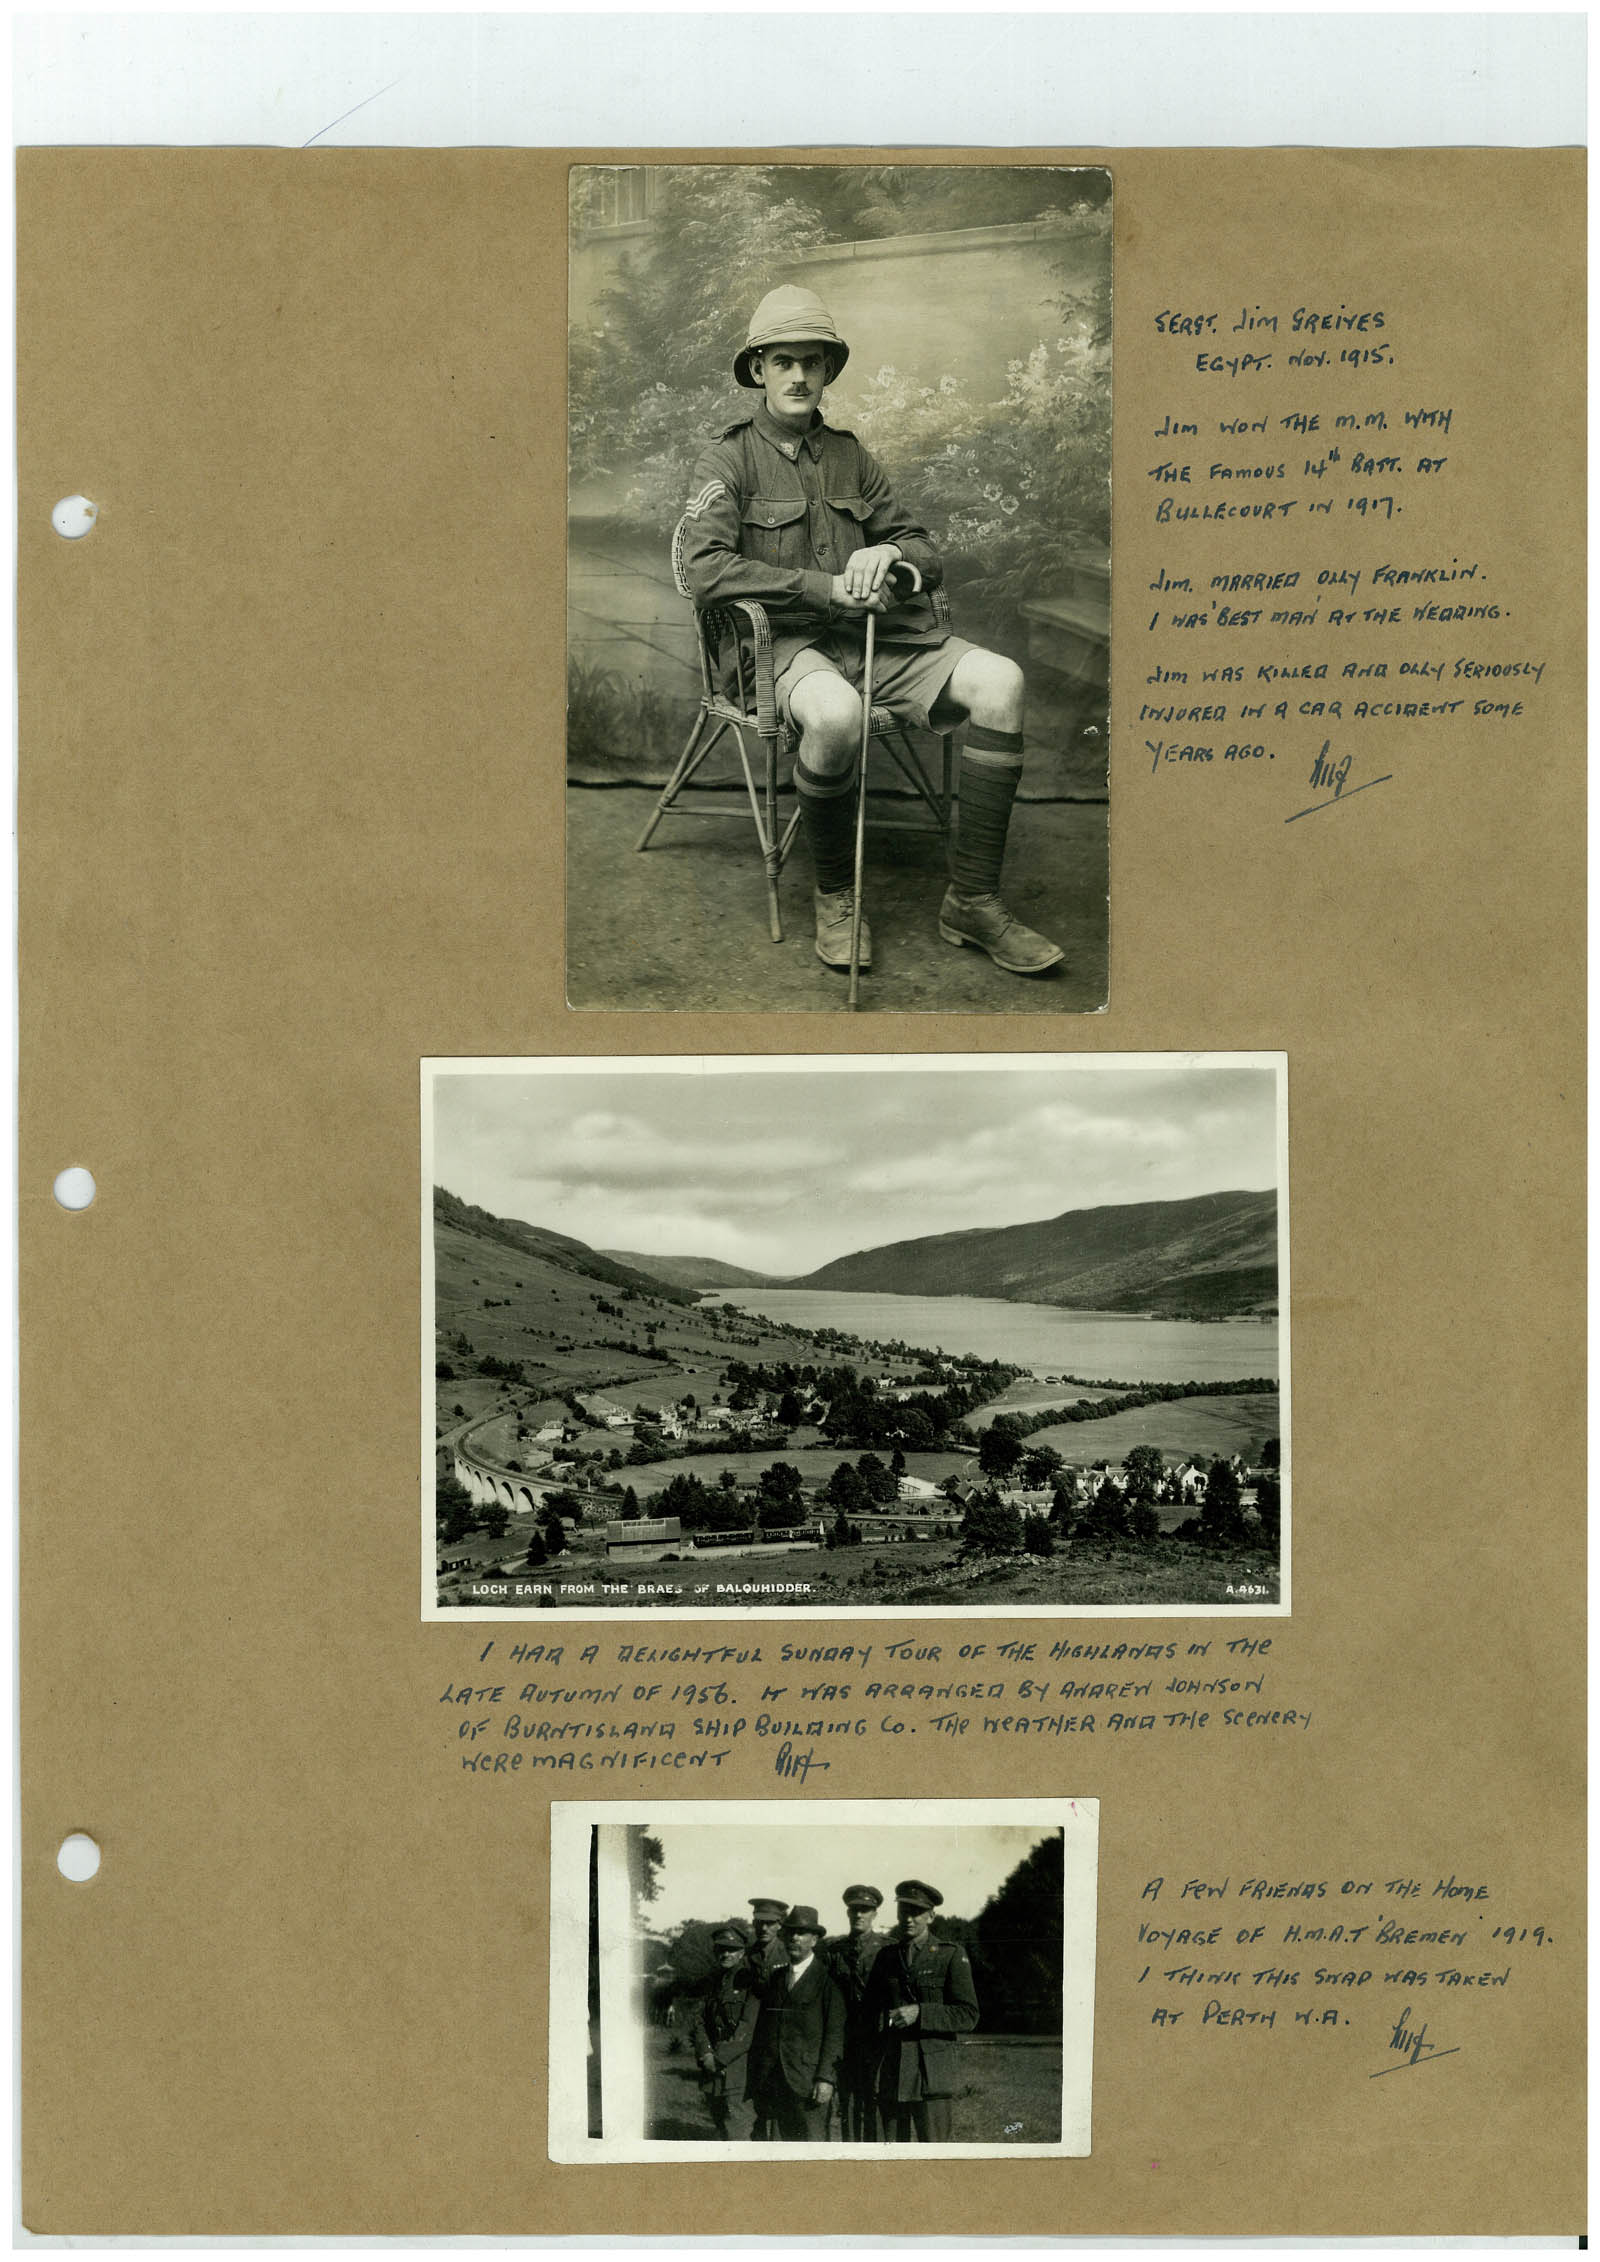 SERGT. JIM GREIVES
EGYPT. NOV. 1915.
JIM WON THE M.M. WITH
THE FAMOUS 14th BATT. AT
BULLECOURT IN 1917.
JIM. MARRIED OLLY FRANKLIN.
I WAS 'BEST MAN' AT THE WEDDING.
JIM WAS KILLED AND OLLY SERIOUSLY
INJURED IN A CAR ACCIDENT SOME
YEARS AGO.
LOCH EARN FROM THE BRAES OF BALQUHIDDER.
A.4631.
I HAD A DELIGHTFUL SUNDAY TOUR OF THE HIGHLANDS IN THE
LATE AUTUMN OF 1956. IT WAS ARRANGED BY ANDREW JOHNSON
OF BURNTISLAND SHIP BUILDING Co. THE WEATHER AND THE SCENERY
WERE MAGNIFICENT
A FEW FRIENDS ON THE HOME
VOYAGE OF H.M.A.T 'BREMEN' 1919.
I THINK THIS SNAP WAS TAKEN
AT PERTH W.A.